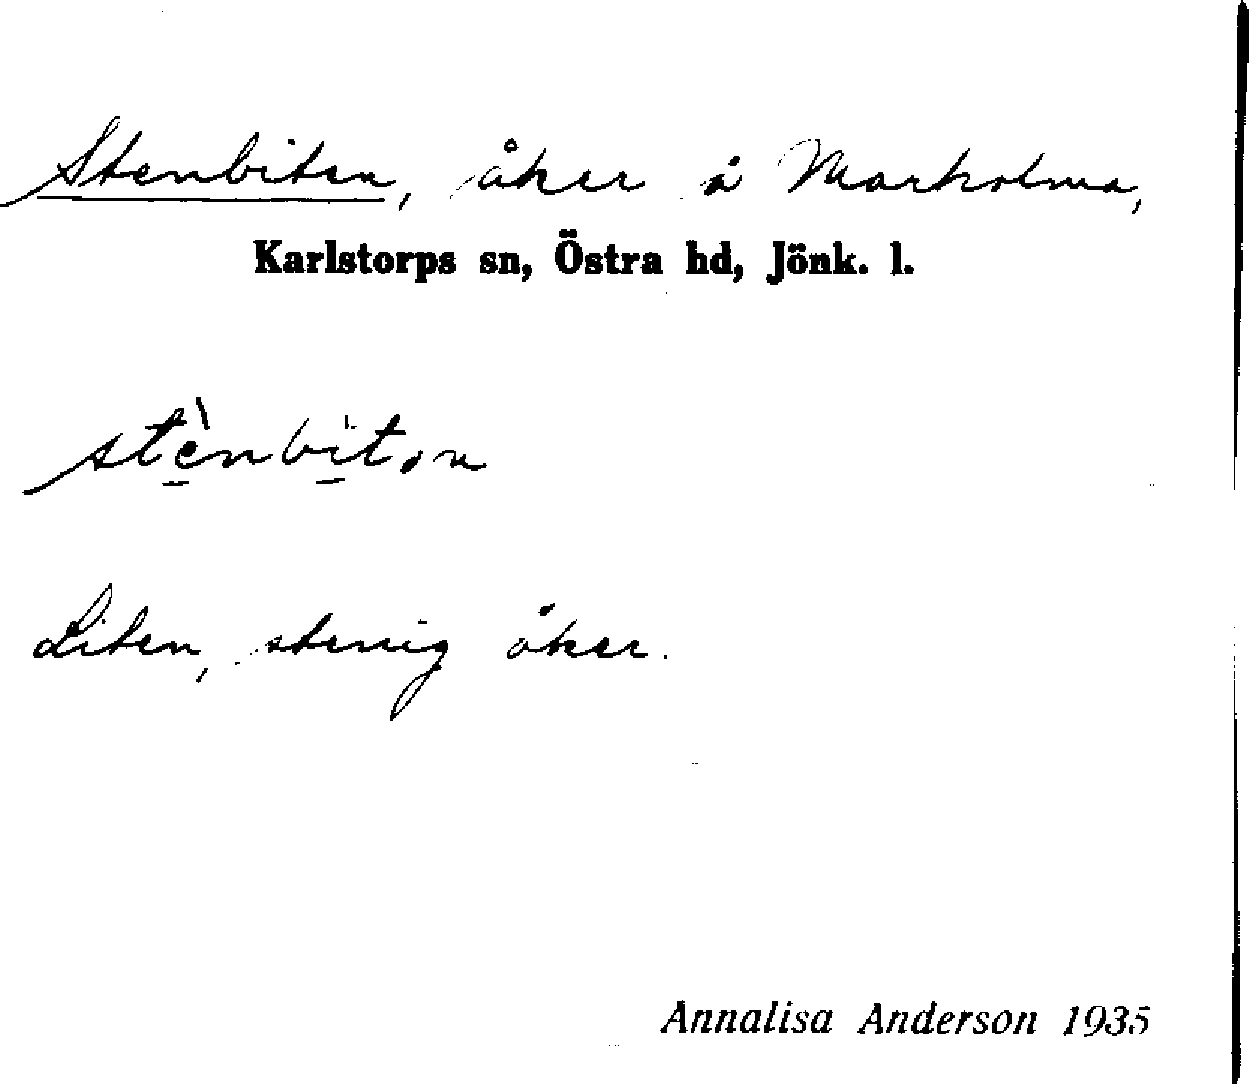 Stenbiten, åker å Markolma,
Karlstorps sn, Östra hd, Jönk. l.
Liten, stenig åker.
Annalisa Anderson 1935